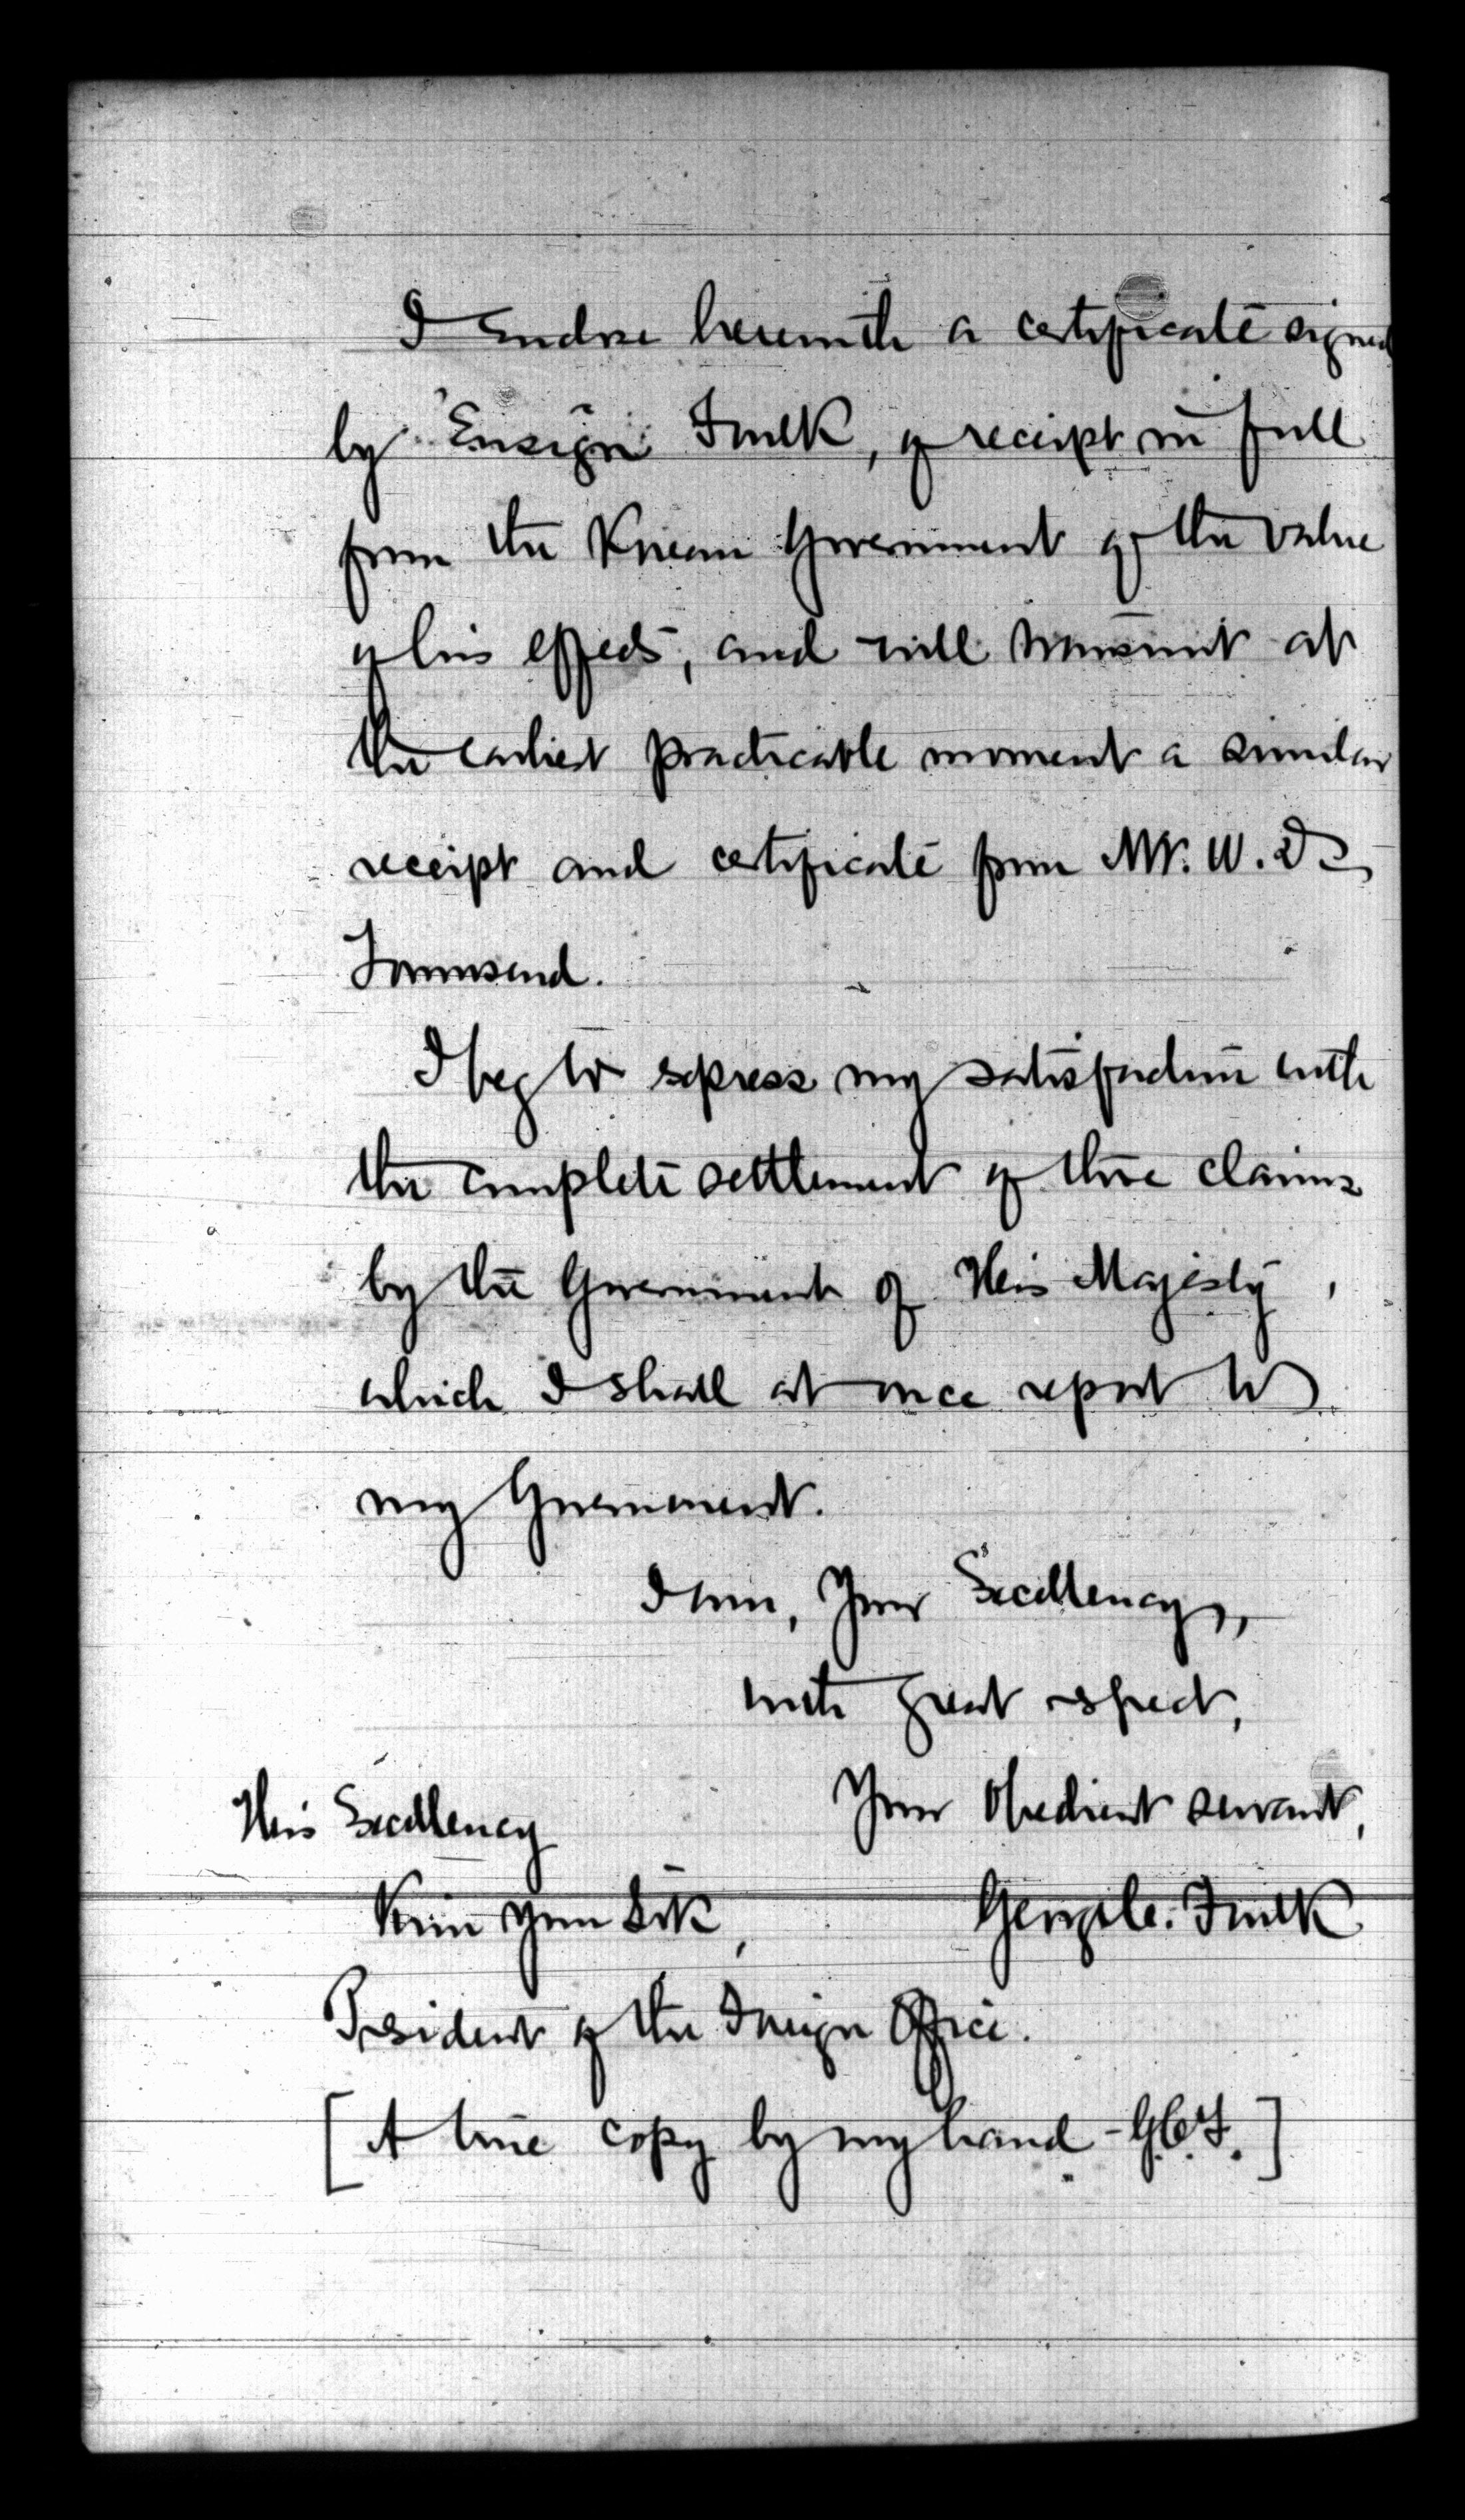 I enclose herewith a certificate signed
by Ensign Foulk, of receipt in full
from the Korean Government of the value
of his effects, and will transmit at
the earliest practicable moment a similar
receipt and certificate from Mr. W. D.
Townsend.
I beg to express my satisfaction with
the complete settlement of these claims
by the Government of His Majesty,
which I shall at once report to
my Government.
I am, Your Excellency,
with great respect,
Your obedient servant,
His Excellency
George C. Foulk
Kim Yun Sik,
President of the Foreign Office.
[A true copy by my hand - G.C.F.]